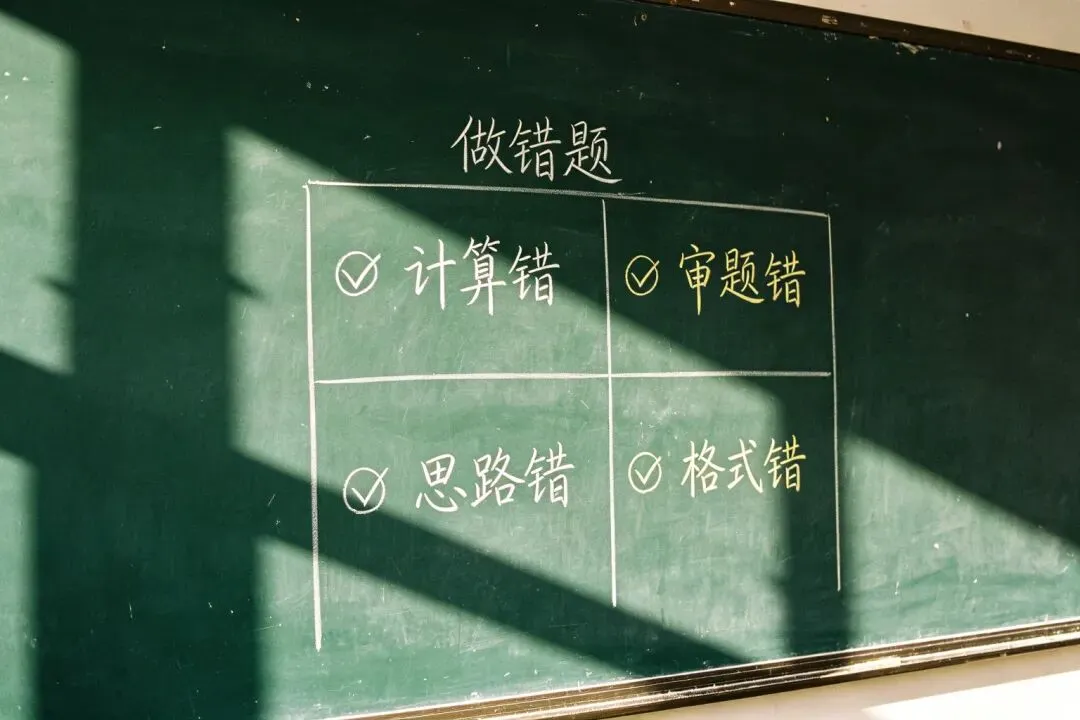 做错题
计算错
审题错
思路错
格式错